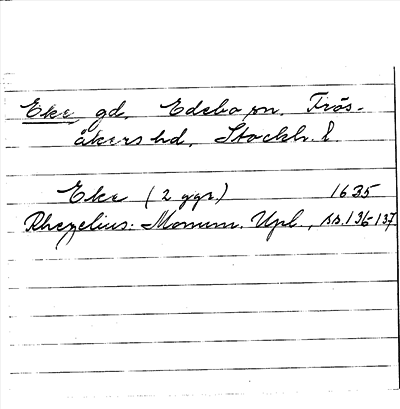 Eke gd. Edebo sn. Frös-
åkers hd. Stockh. l.
Eke (2 ggr.) 1635
Rhezelius: Monum. Upl., ss. 136-137